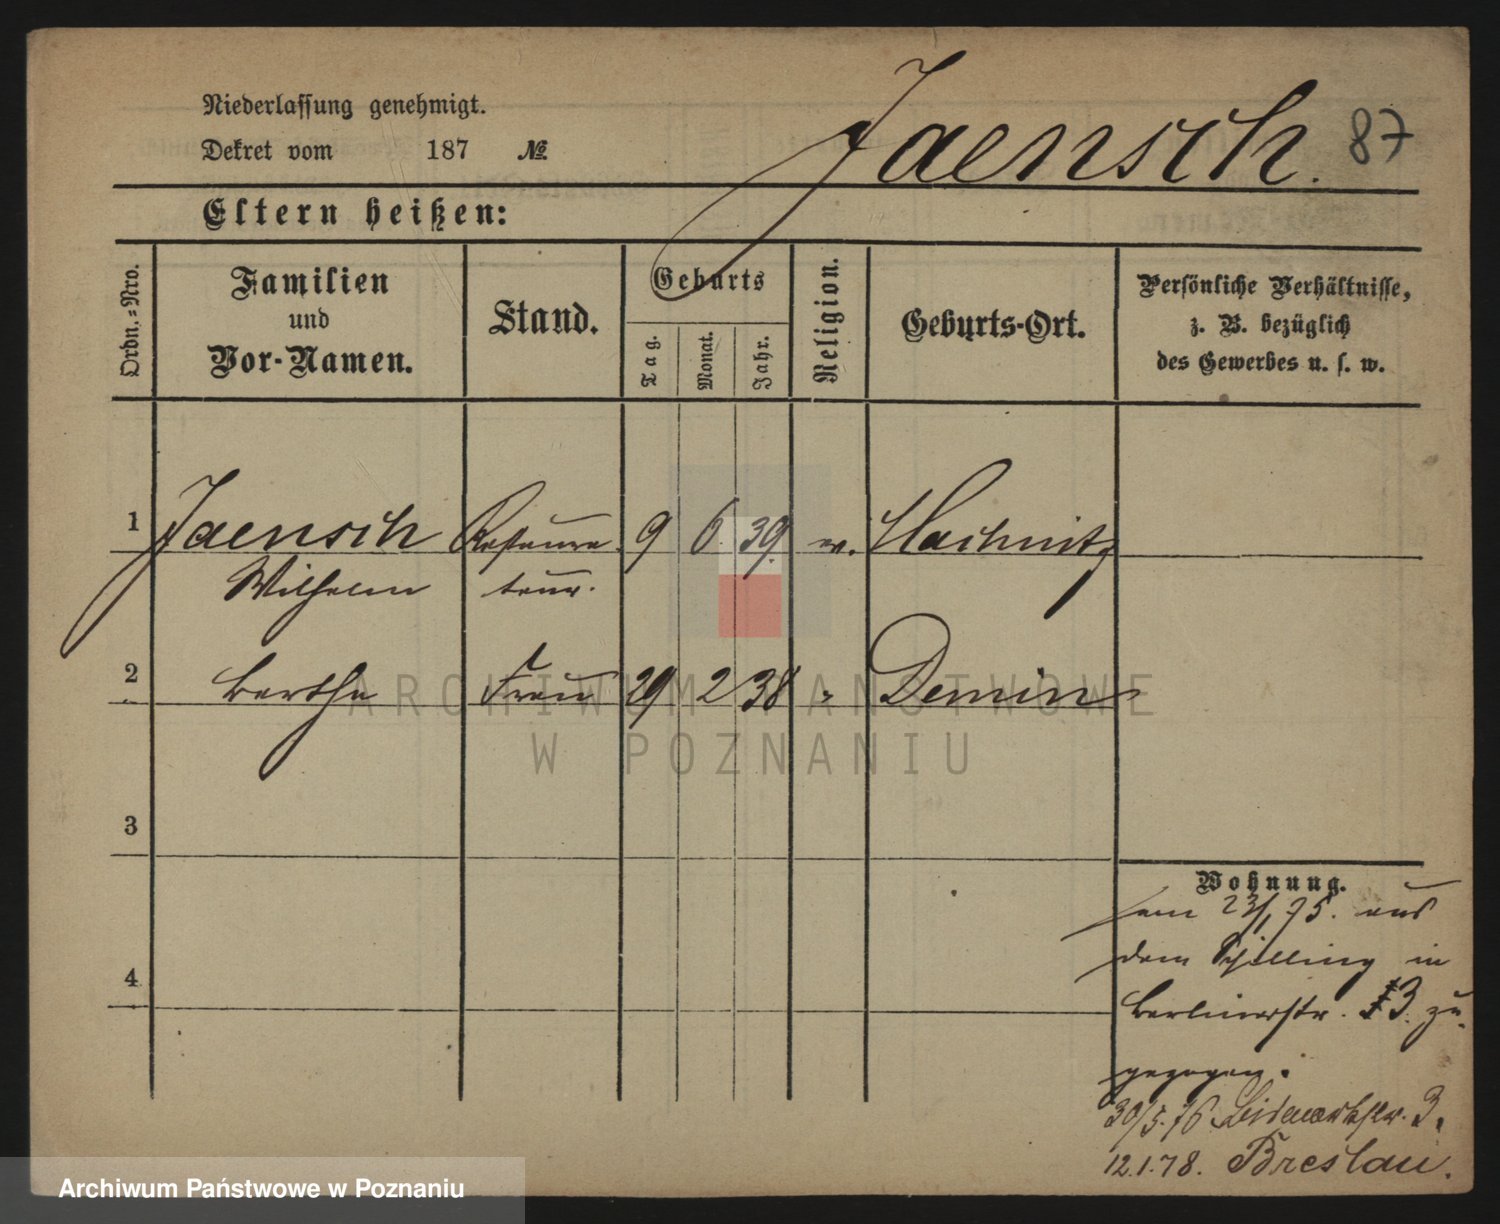 Niederlassung genehmigt.
Dekret vom 187 №
Jaensch. 87
Eltern heißen:
Ordn.-Nro.
Familien
und
Vor-Namen.
Stand.
Geburts
Tag.
Monat.
Jahr.
Religion.
Geburts-Ort.
Persönliche Verhältnisse,
z. B. bezüglich
des Gewerbes u. s. w.
1 Jaensch Restaura 9 6. 39. ev. Hachnitz
Wilhelm teur.
2 Bertha Frau 29 2 38 " Demin
3
4
Wohnung.
am 23/1 75. aus
dem Schilling in
Berlinerstr. 3. zu-
gezogen.
30/5.76. Bismarckstr. 3.
12.1.78. Breslau.
ARCHIWUM PAŃSTWOWE
W POZNANIU
Archiwum Państwowe w Poznaniu